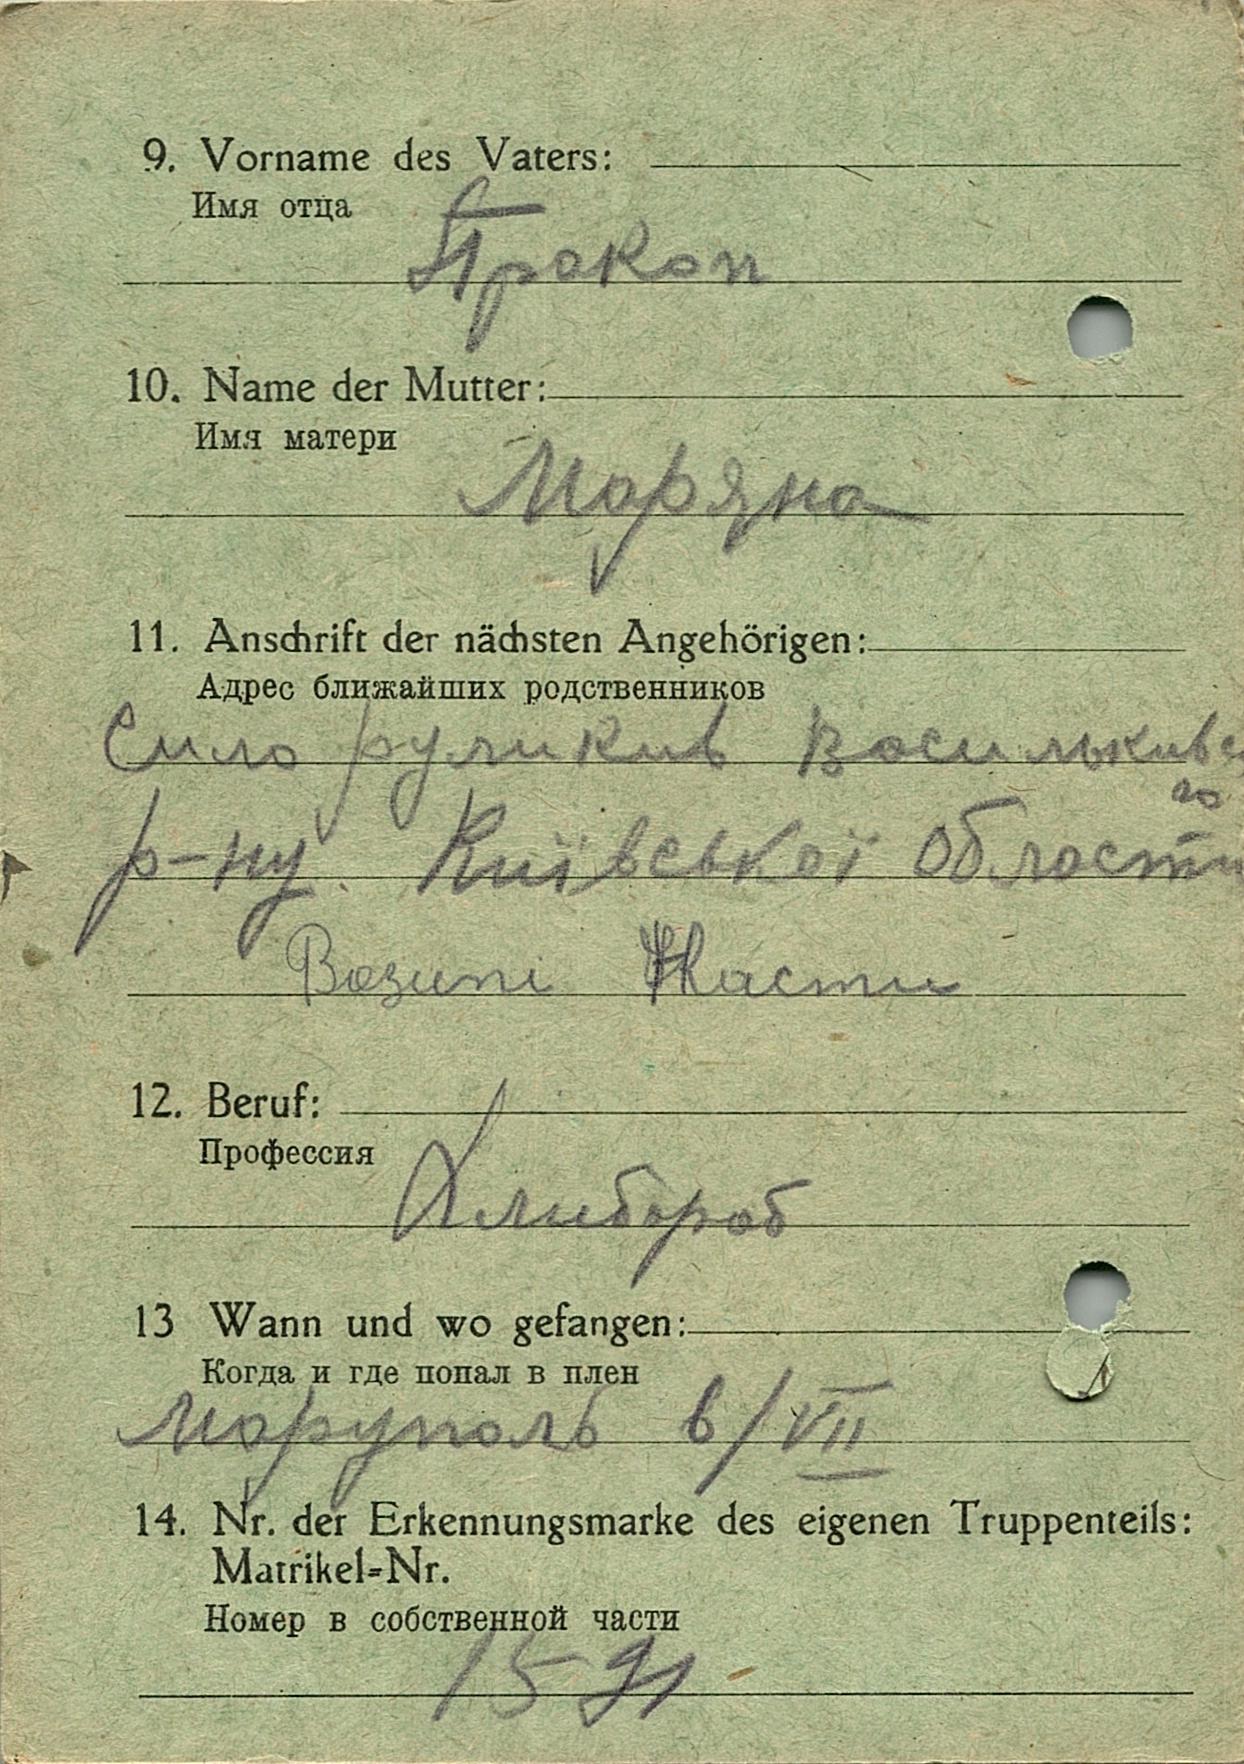 9. Vorname des Vaters:
Имя отца
Прокоп
10. Name der Mutter:
Имя матери
Маряна
11. Anschrift der nächsten Angehörigen:
Адрес ближайших родственников
Сило руликив Васильківс
го
р-ну. Київської Області
Насти
12. Beruf:
Профессия
Хлибороб
13 Wann und wo gefangen:
Когда и где попал в плен
Маруполь 6/VII
14. Nr. der Erkennungsmarke des eigenen Truppenteils:
Matrikel=Nr.
Номер в собственной части